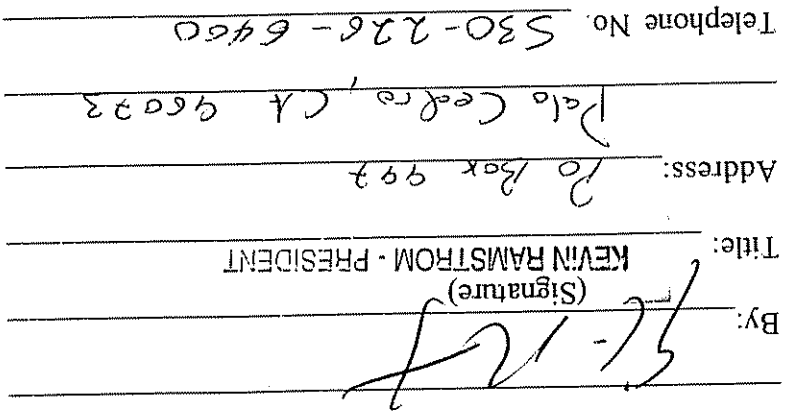 By:
(Signature)
Title: KEVIN RAMSTROM - PRESIDENT
Address: PO Box 997
Palo Cedro, CA 96073
Telephone No. 530-226-6400